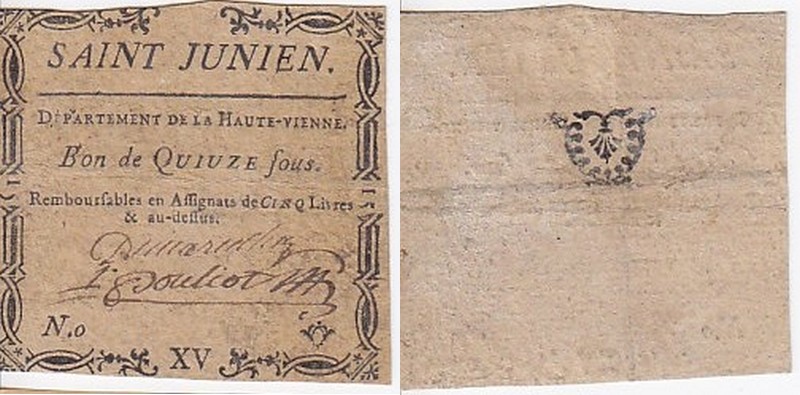 SAINT JUNIEN.
DÉPARTEMENT DE LA HAUTE-VIENNE.
Bon de QUIUZE ſous.
Rembourſables en Aſſignats de CINQ Livres
& au-deſſus.
Pouliot
N.o
XV